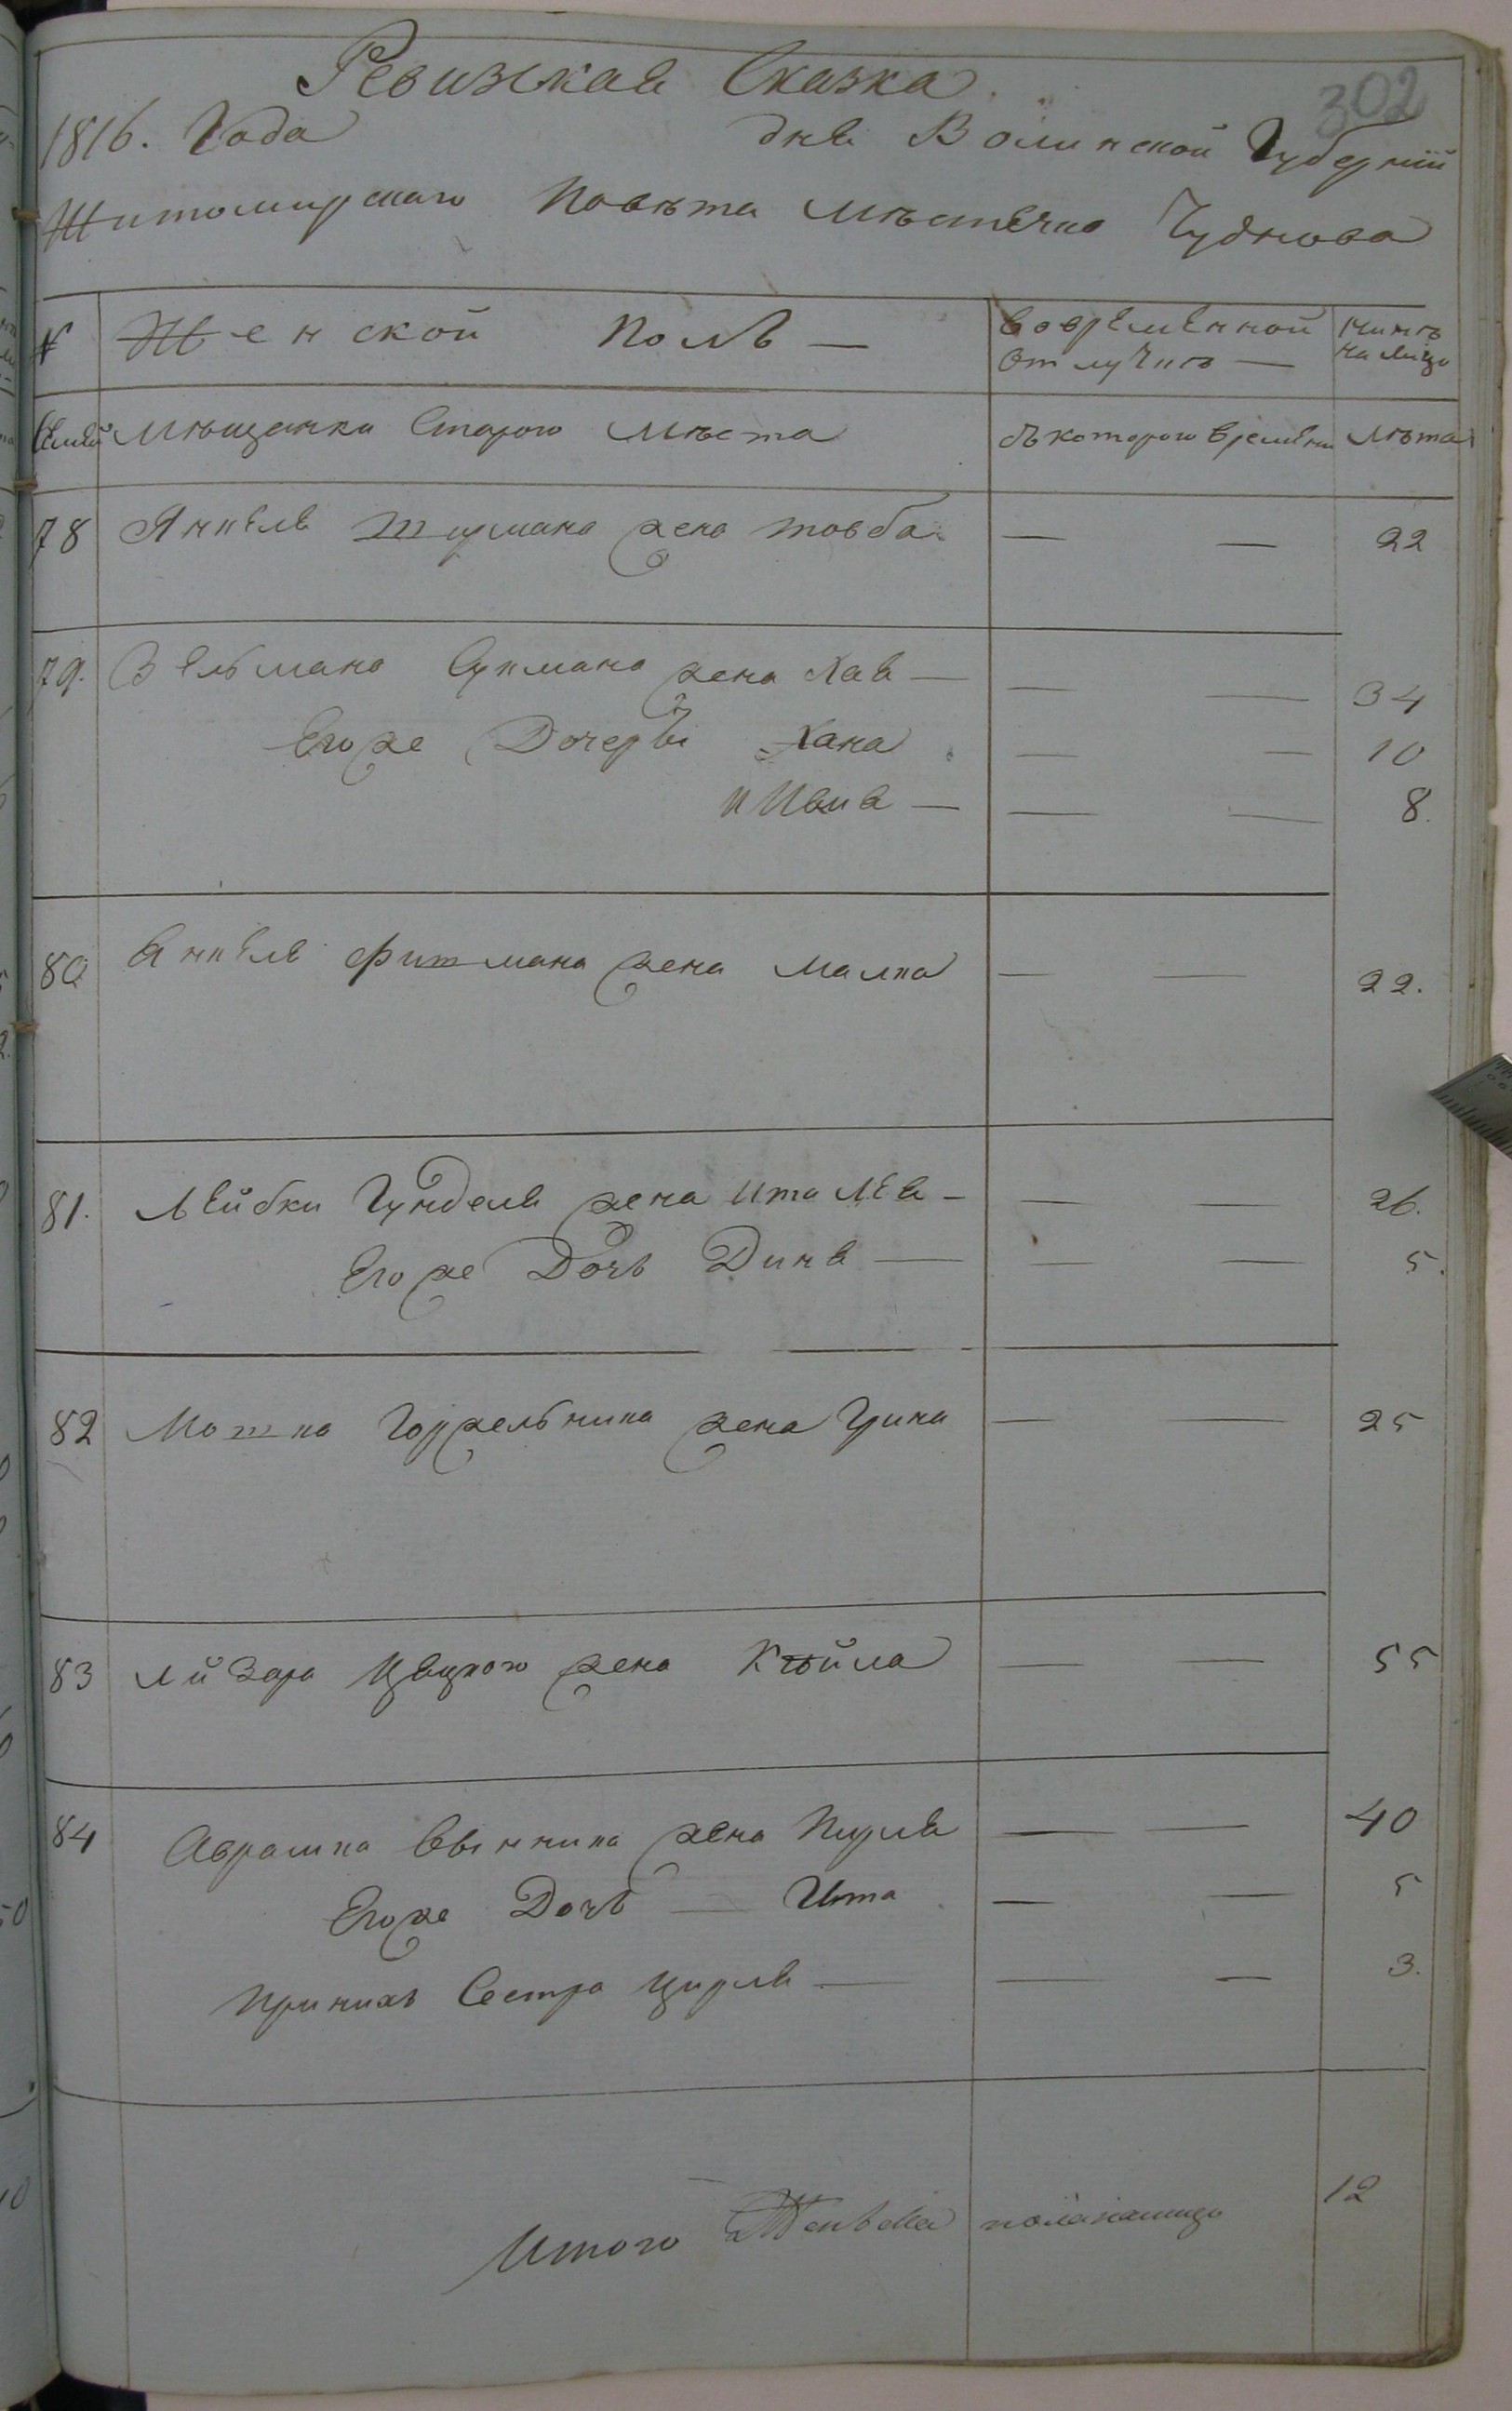 302
Ревизская Сказка
1816. Года дня Волинской Губерніи
Житомирскаго Повѣта мѣстечка Чуднова
№ Женской Полъ — Вовременной нынѣ
Отлучкѣ — на лицо
Семей Мѣщанки Старого Мѣста Съ которого времени Лѣта
78 Янкеля Турмана жена Товба — — 22
79. Зельмана Сукмана жена Хая — — — 34
Его же Дочерѣ Хана — — 10
и — — — 8.
80 Янкеля Фитмана жена Малка — — 22.
81. Лейбки Гунделя жена Ита Лея — — — 26.
Его же Дочь Диня — — — 5.
82 Мотка Горжельника жена — — 25
83 Лйзора жена Кѣйла — — 55
84 Аврамка Свинника жена Перля — — 40
Его же Дочь — Ита — — 5
При нихъ Сестра Цирля — — — 3.
Итого Женска пола налицо 12